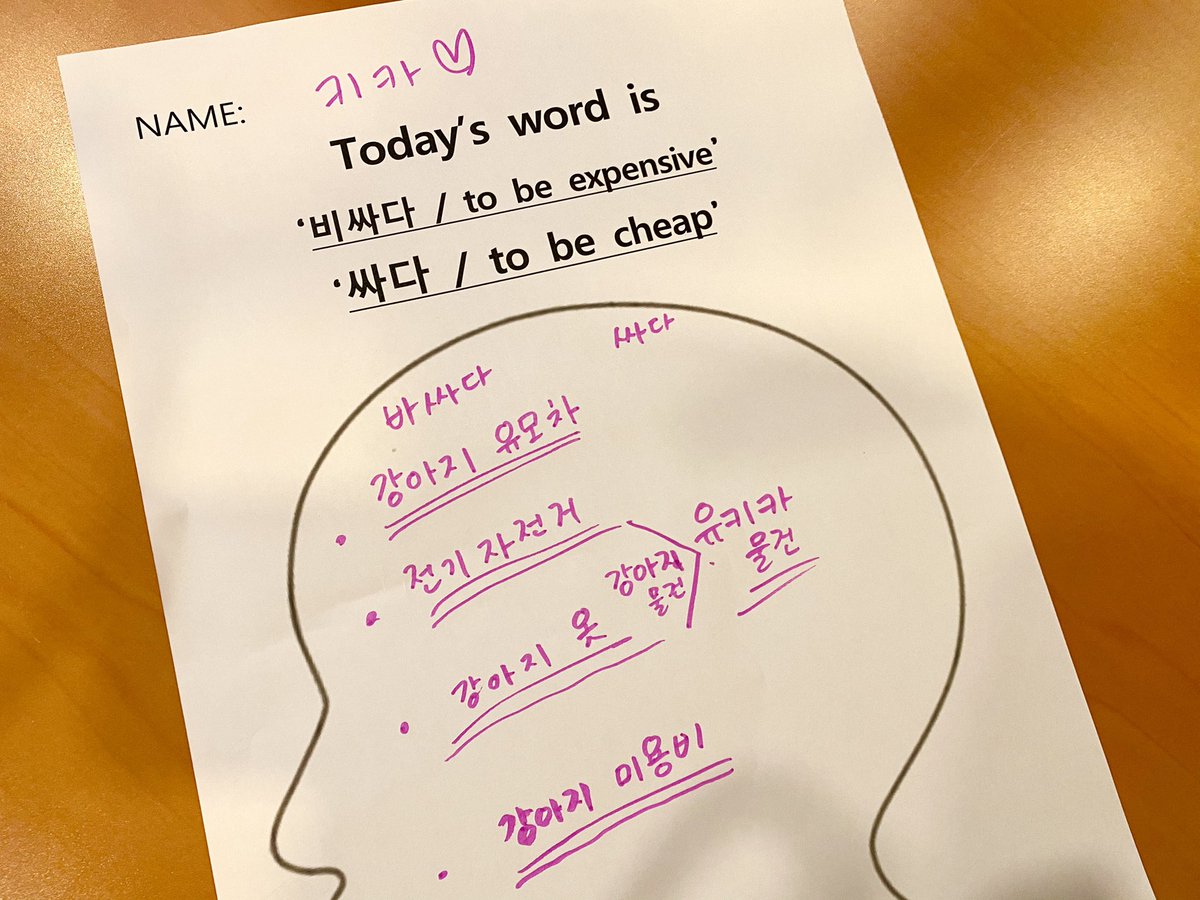 NAME: 키카♡
Today's word is
‘비싸다 / to be expensive’
‘싸다 / to be cheap’
싸다
바싸다
강아지 유모차
전기 자전거
유키카
물건
강아지
물건
강아지 옷
강아지 미용비